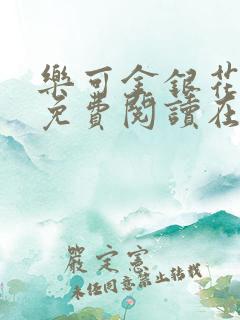 樂可金銀花
免費閱讀在
嚴定憲
未經同意禁止轉載